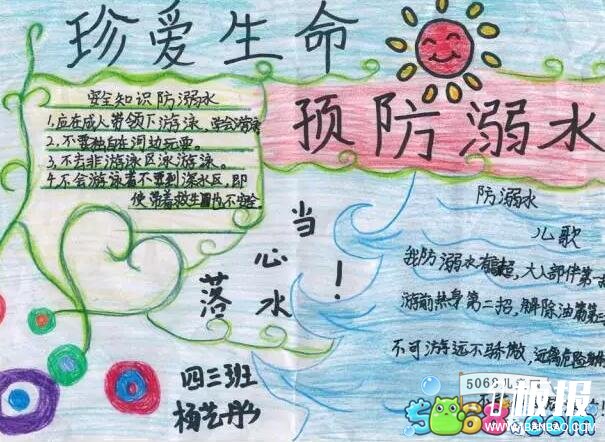 珍爱生命
预防溺水
安全知识防溺水
1.应在成人带领下游泳,学会游泳
2.不要独自在河边玩耍。
3.不去非游泳区泳游泳。
4.不会游泳者不要到深水区,即
使带着救生圈也不安全
当心落水!
防溺水
儿歌
我防溺水有 大人部伴第一
游前热身第二招,解除油 第
不可游远不骄傲,远离危险
四三班
杨艺彤
5068儿
www.banbao.com
5068.com